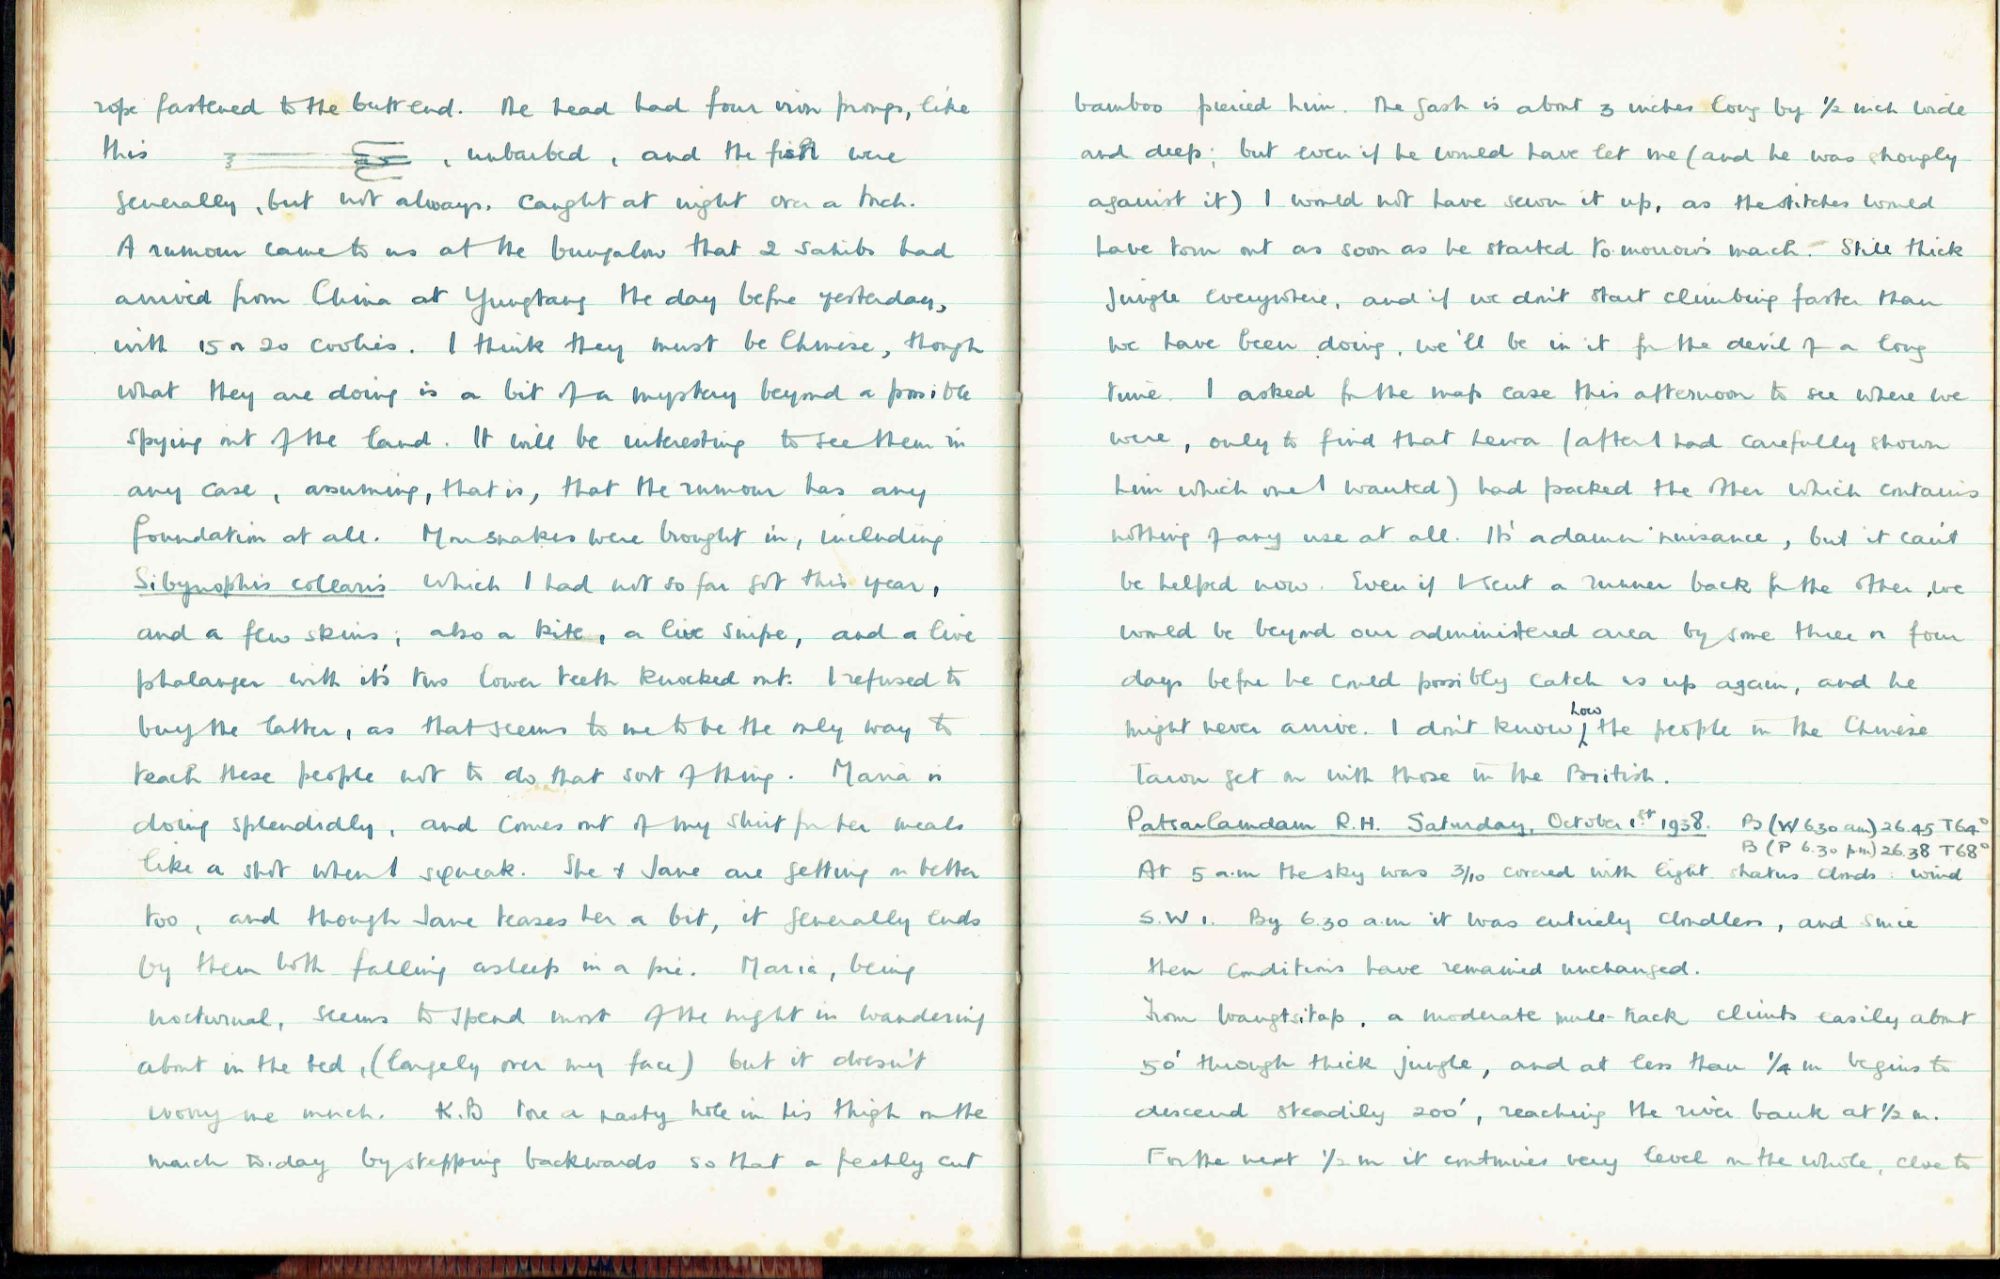 rope fastened to the butt end. The head had four iron prongs, like
this , unbarbed, and the fish were
generally, but not always. caught at night over a torch.
A rumour came to us at the bungalow that 2 Sahibs had
arrived from China at Yungtang the day before yesterday,
with 15 or 20 coolies. I think they must be Chinese, though
what they are doing is a bit of a mystery beyond a possible
spying out of the land. It will be interesting to see them in
any case, assuming, that is, that the rumour has any
foundation at all. More snakes were brought in, including
Sibynophis collaris which I had not so far got this year,
and a few skins; also a kite, a live snipe, and a live
phalanger with it's two lower teeth knocked out. I refused to
buy the latter, as that seems to me to be the only way to
teach these people not to do that sort of thing. Maria is
doing splendidly, and comes out of my shirt for her meals
like a shot when I squeak. She & Jane are getting on better
too, and though Jane teases her a bit, it generally ends
by them both falling asleep in a pie. Maria, being
nocturnal, seems to spend most of the night in wandering
about in the bed, (largely over my face) but it doesn't
worry me much. K.B tore a nasty hole in his thigh on the
march to-day by stepping backwards so that a freshly cut
bamboo pierced him. The gash is about 3 inches long by ½ inch wide
and deep; but even if he would have let me (and he was strongly
against it) I would not have sewn it up, as the stitches would
have torn out as soon as he started to-morrow's march. Still thick
jungle everywhere, and if we don't start climbing faster than
we have been doing, we'll be in it for the devil of a long
time. I asked for the map case this afternoon to see where we
were, only to find that Lewa (after I had carefully shown
him which one I wanted) had packed the other which contains
nothing of any use at all. It's a damn nuisance, but it can't
be helped now. Even if I sent a runner back for the other, we
would be beyond our administered area by some three or four
days before he could possibly catch us up again, and he
might never arrive. I don't know how the people in the Chinese
Taron get on with those in the British.
Patsarlamdam R.H. Saturday, October 1st 1938. B (W 6.30 am) 26.45 T64°
B (P 6.30 pm) 26.38 T68°
At 5 a.m the sky was 3/10 covered with light stratus clouds: wind
S.W 1. By 6.30 a.m it was entirely cloudless, and since
then conditions have remained unchanged.
From Wangtsitap, a moderate mule-track climbs easily about
50' through thick jungle, and at less than ¼ m begins to
descend steadily 200', reaching the river bank at ½ m.
For the next ½ m it continues very level on the whole, close to